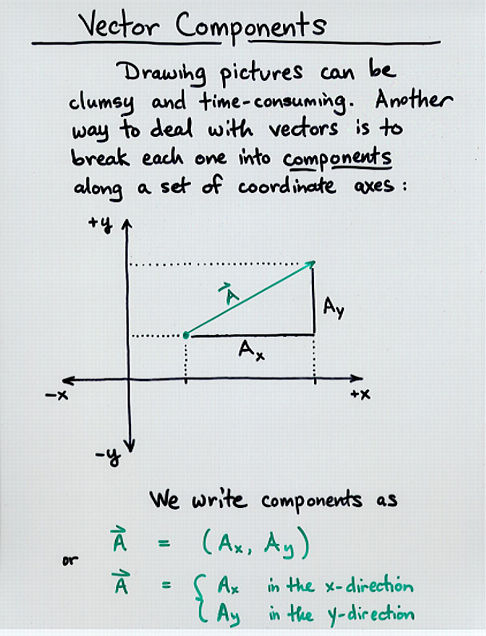 Vector Components
Drawing pictures can be
clumsy and time-consuming. Another
way to deal with vectors is to
break each one into components
along a set of coordinate axes :
+y
A⃗
Ay
Ax
-x
+x
-y
We write components as
A⃗ = (Ax, Ay)
or
A⃗ = { Ax in the x-direction
Ay in the y-direction